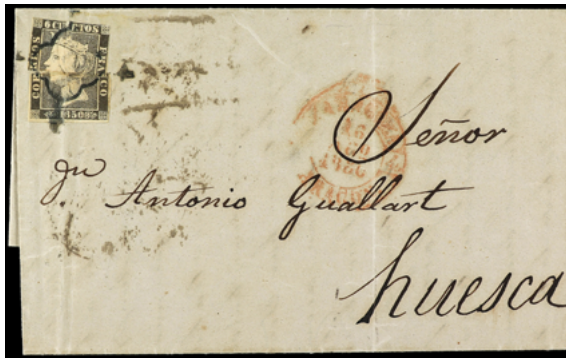 6 CUARTOS
CORREOS
FRANCO
1850
Señor
Dn Antonio Guallart
huesca